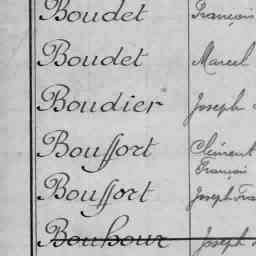 Boudet François
Boudet Marcel
Boudier Joseph
Bouffort Clément
François
Bouffort Joseph Fra
Bouhour Joseph